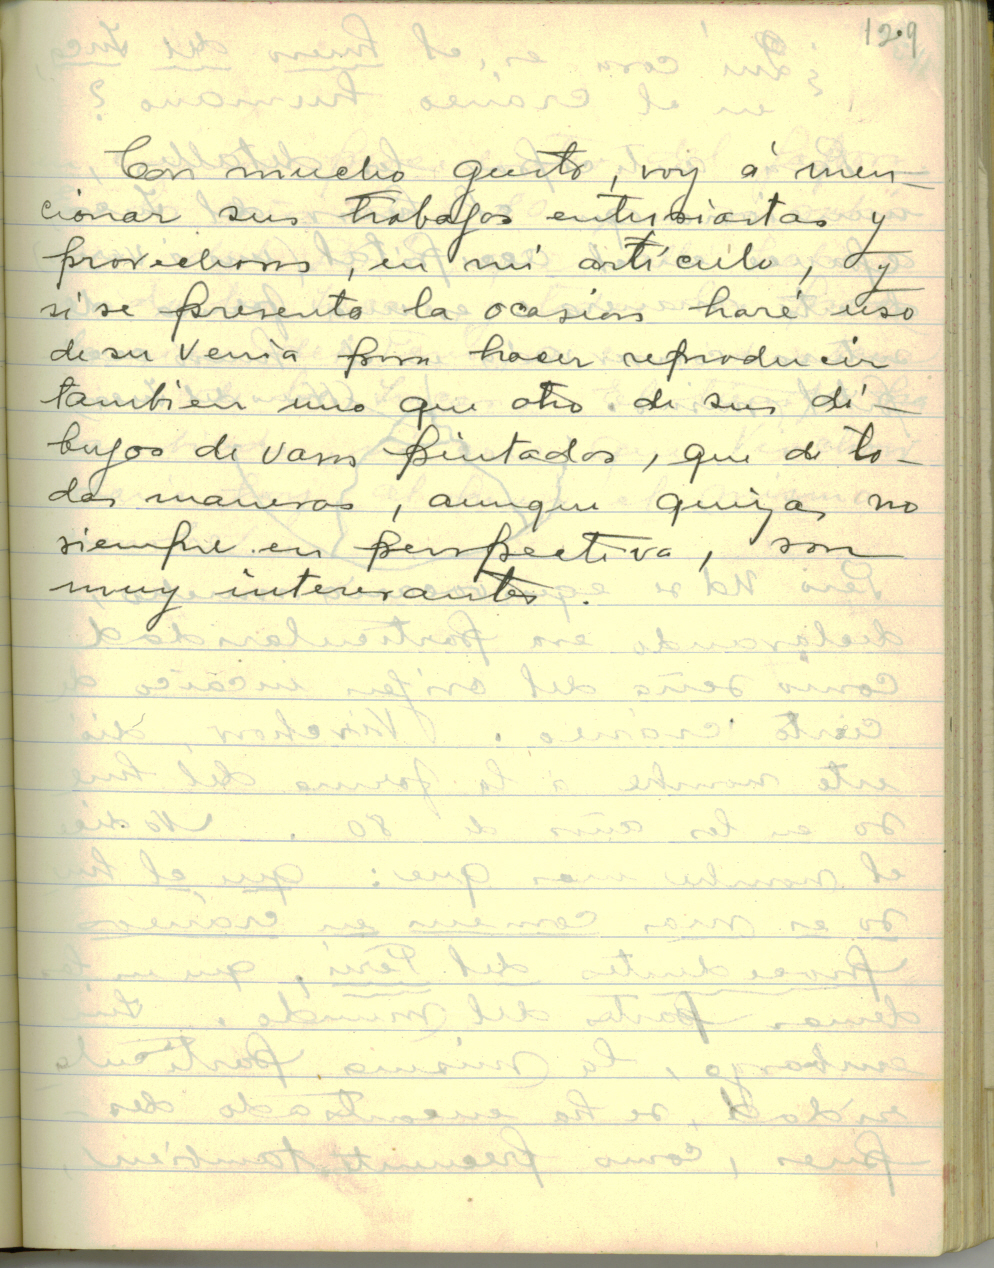 129
Con mucho gusto, voy á men-
cionar sus trabajos entusiastas y
provechosos, en mi artículo, y
si se presenta la ocasion haré uso
de su venia para hacer reproducir
tambien uno que otro de sus di-
bujos de vasos pintados, que de to-
das maneras, aunque quizas no
siempre en perspectiva, son
muy interesantes.